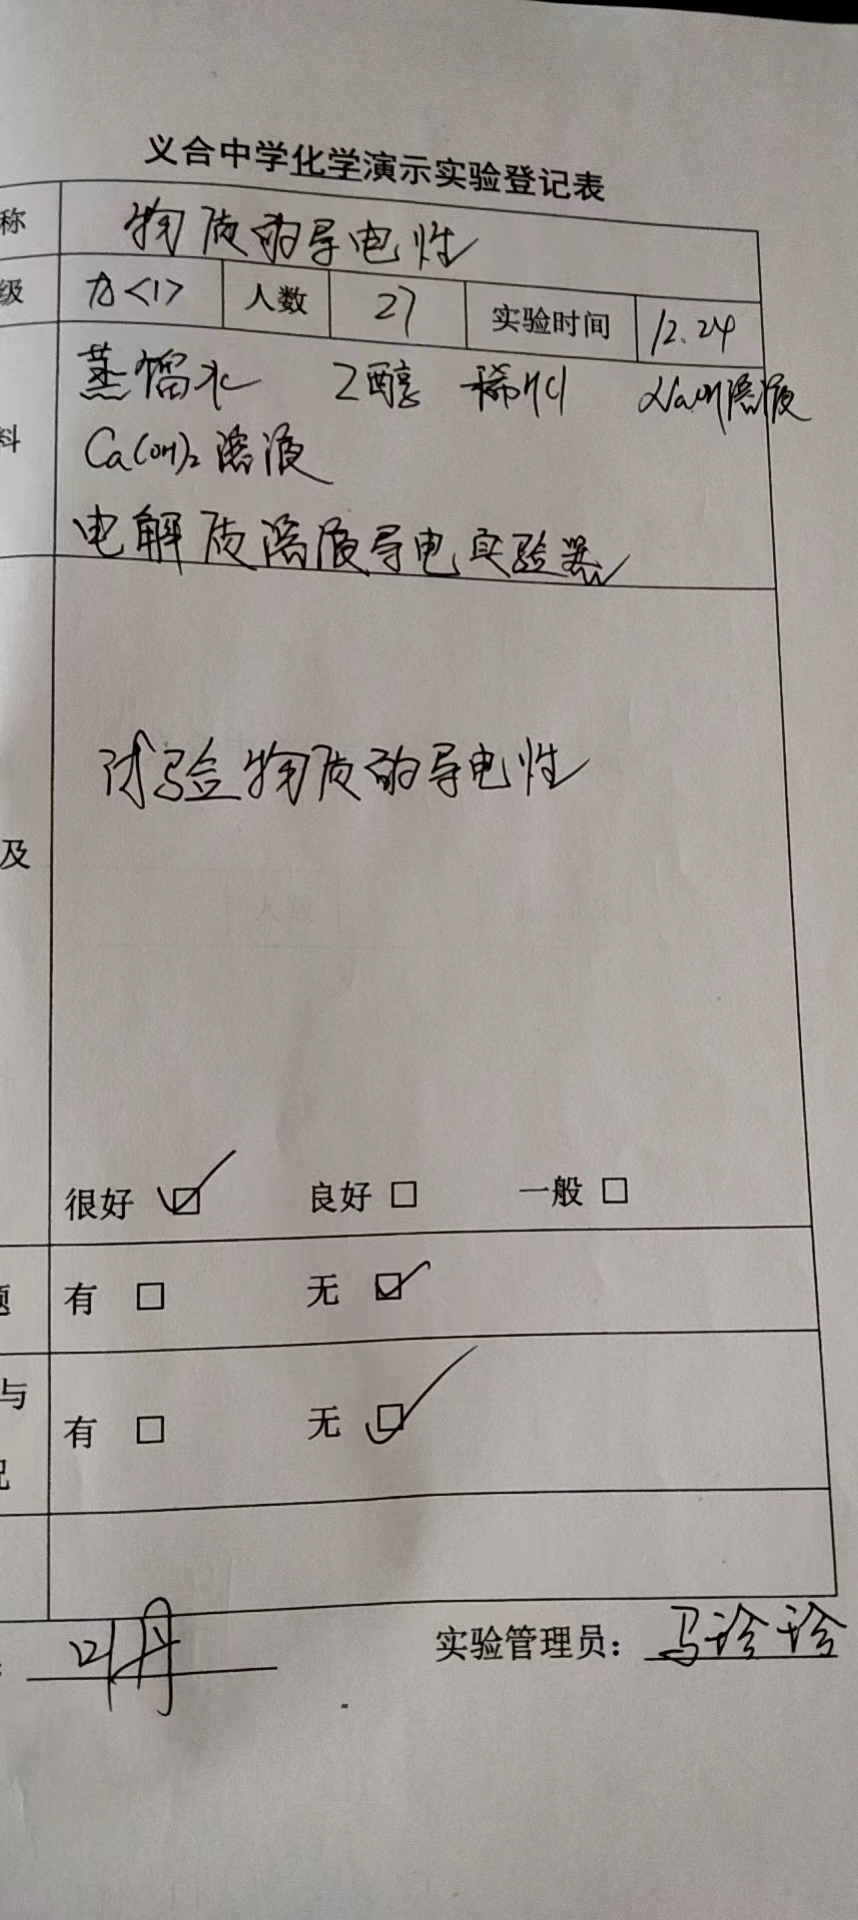 义合中学化学演示实验登记表
称 物质的导电性
级 九<1> 人数 27 实验时间 12.24
蒸馏水 乙醇 稀HCl NaOH溶液
料 Ca(OH)₂溶液
电解质溶液导电实验器
试验物质的导电性
及
很好 ☑ 良好 □ 一般 □
题 有 □ 无 ☑
与
有 □ 无 ☑
况
叶丹 实验管理员: 马珍珍